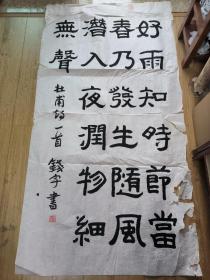 好雨知時節當
春乃發生隨風
潛入夜潤物細
無聲
杜甫詩一首
錢 書